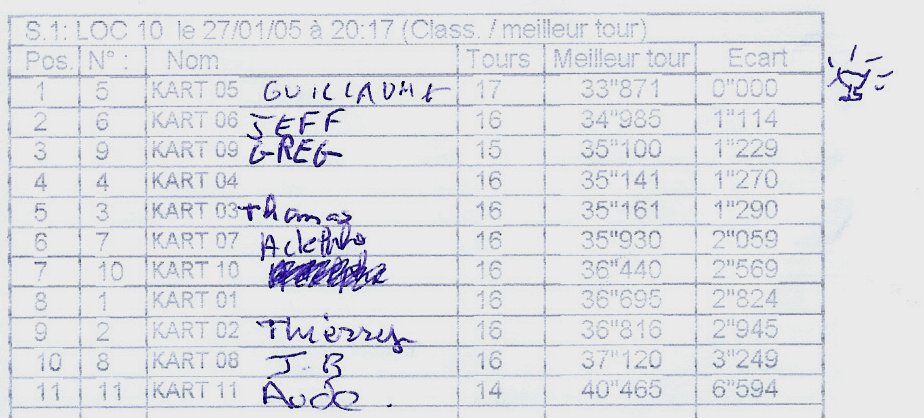 S.1: LOC 10 le 27/01/05 à 20:17 (Class. / meilleur tour)
Pos. N° : Nom Tours Meilleur tour Ecart
1 5 KART 05 GUILLAUME 17 33"871 0"000
2 6 KART 06 JEFF 16 34"985 1"114
3 9 KART 09 GREG 15 35"100 1"229
4 4 KART 04 16 35"141 1"270
5 3 KART 03 Thomas 16 35"161 1"290
6 7 KART 07 16 35"930 2"059
7 10 KART 10 16 36"440 2"569
8 1 KART 01 16 36"695 2"824
9 2 KART 02 Thierry 16 36"816 2"945
10 8 KART 08 J.B 16 37"120 3"249
11 11 KART 11 Aude. 14 40"465 6"594